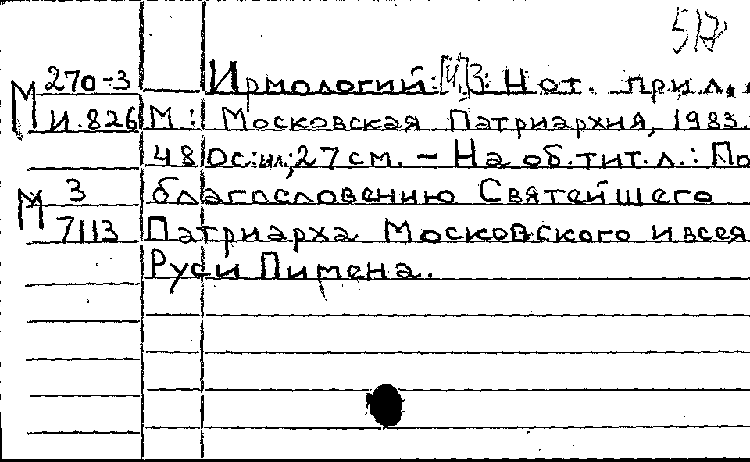 М 270-3 Ирмологий: Нот. прил.
И.826 М.: Московская Патриархия, 1983.
480с: ил; 27см. - На об. тит. л.: По
М 3 благословению Святейшего
7113 Патриарха Московского и всея
Руси Пимена.